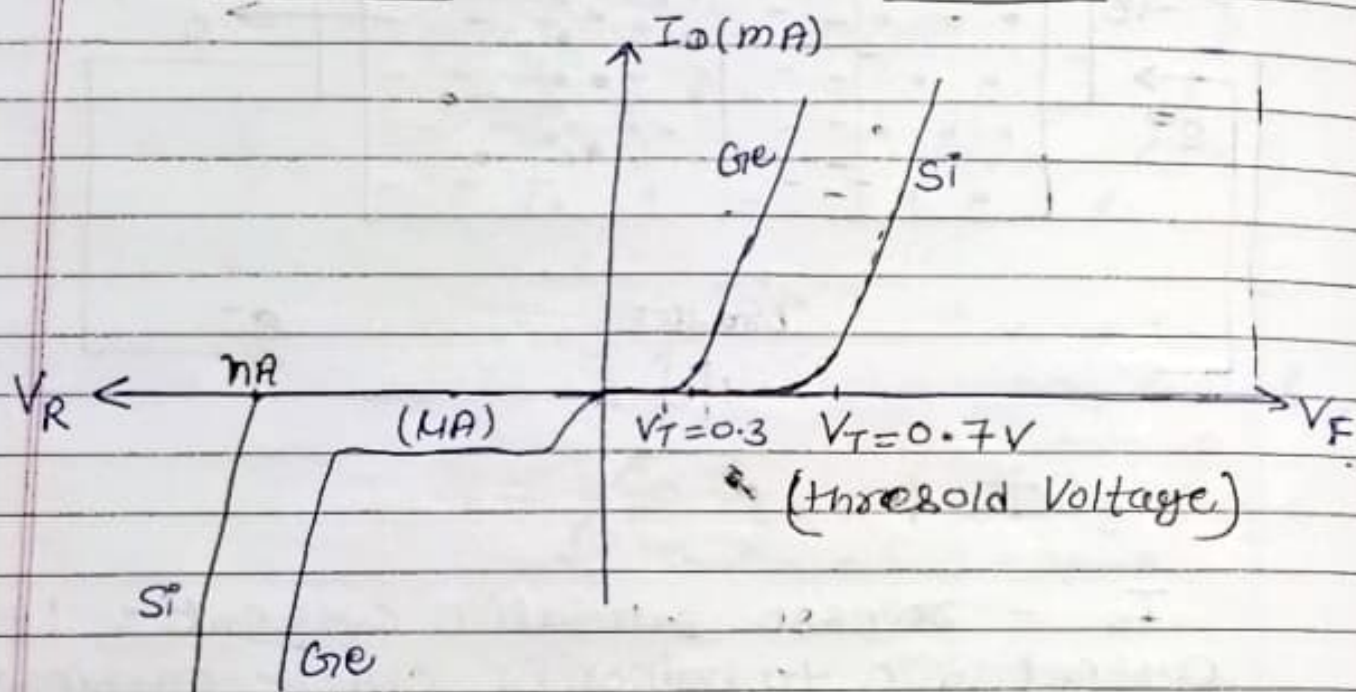 ID (mA)
Ge
Si
nA
VR
(μA)
VT=0.3
VT=0.7V
VF
(thresold Voltage)
Si
Ge